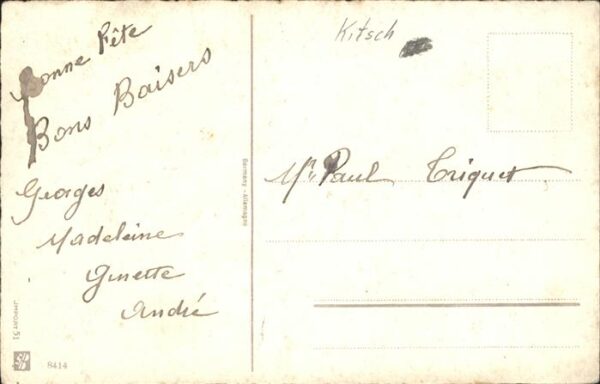 Bonne Fête
Bons Baisers
Georges
Madeleine
Ginette
André
Kitsch
Mr Paul Triquet
Germany - Allemagne
8414